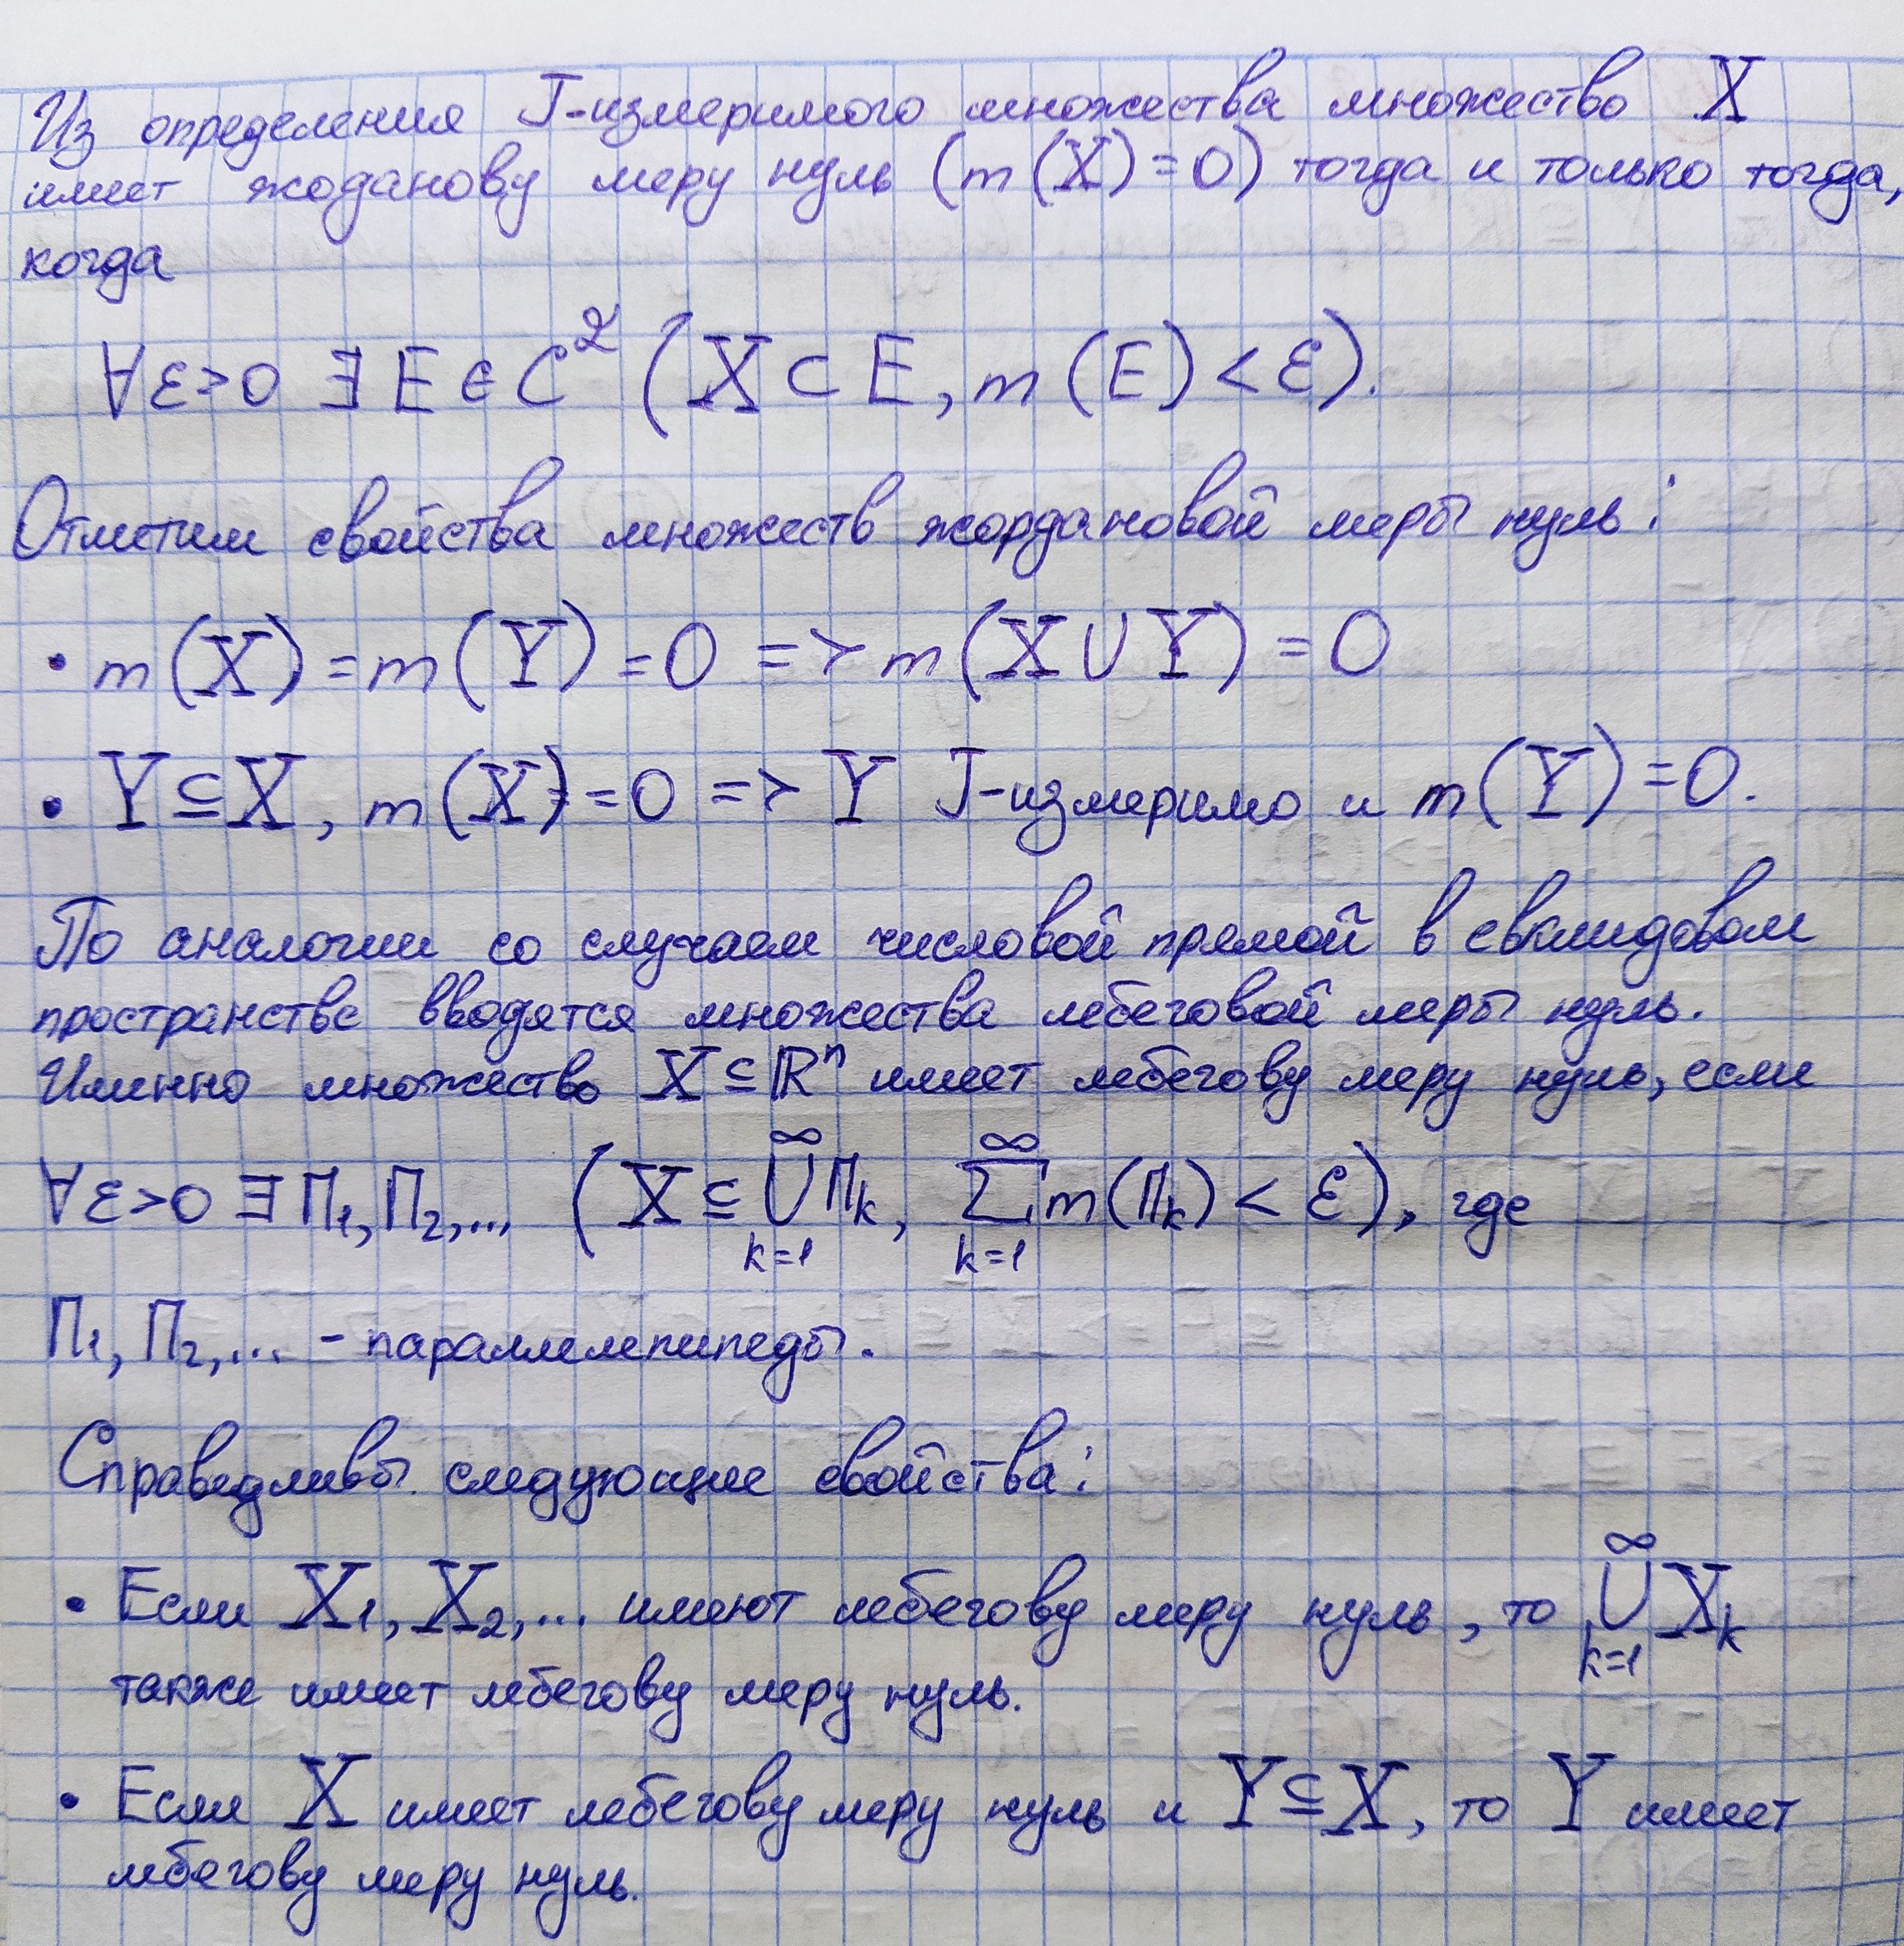 Из определения J-измеримого множества множество X
имеет жоданову меру нуль (m(X)=0) тогда и только тогда,
когда
∀ε>0 ∃E∈C² (X⊂E, m(E)<ε).
Отметим свойства множеств жордановой меры нуль:
• m(X)=m(Y)=0 => m(X∪Y)=0
• Y⊆X, m(X)=0 => Y J-измеримо и m(Y)=0.
По аналогии со случаем числовой прямой в евклидовом
пространстве вводятся множества лебеговой меры нуль.
Именно множество X⊆ℝⁿ имеет лебегову меру нуль, если
∀ε>0 ∃П₁, П₂,... (X⊆⋃_{k=1}^{∞}Пₖ, ∑_{k=1}^{∞}m(Пₖ)<ε), где
П₁, П₂,... - параллелепипеды.
Справедливы следующие свойства:
• Если X₁, X₂,... имеют лебегову меру нуль, то ⋃_{k=1}^{∞}Xₖ
также имеет лебегову меру нуль.
• Если X имеет лебегову меру нуль и Y⊆X, то Y имеет
лебегову меру нуль.